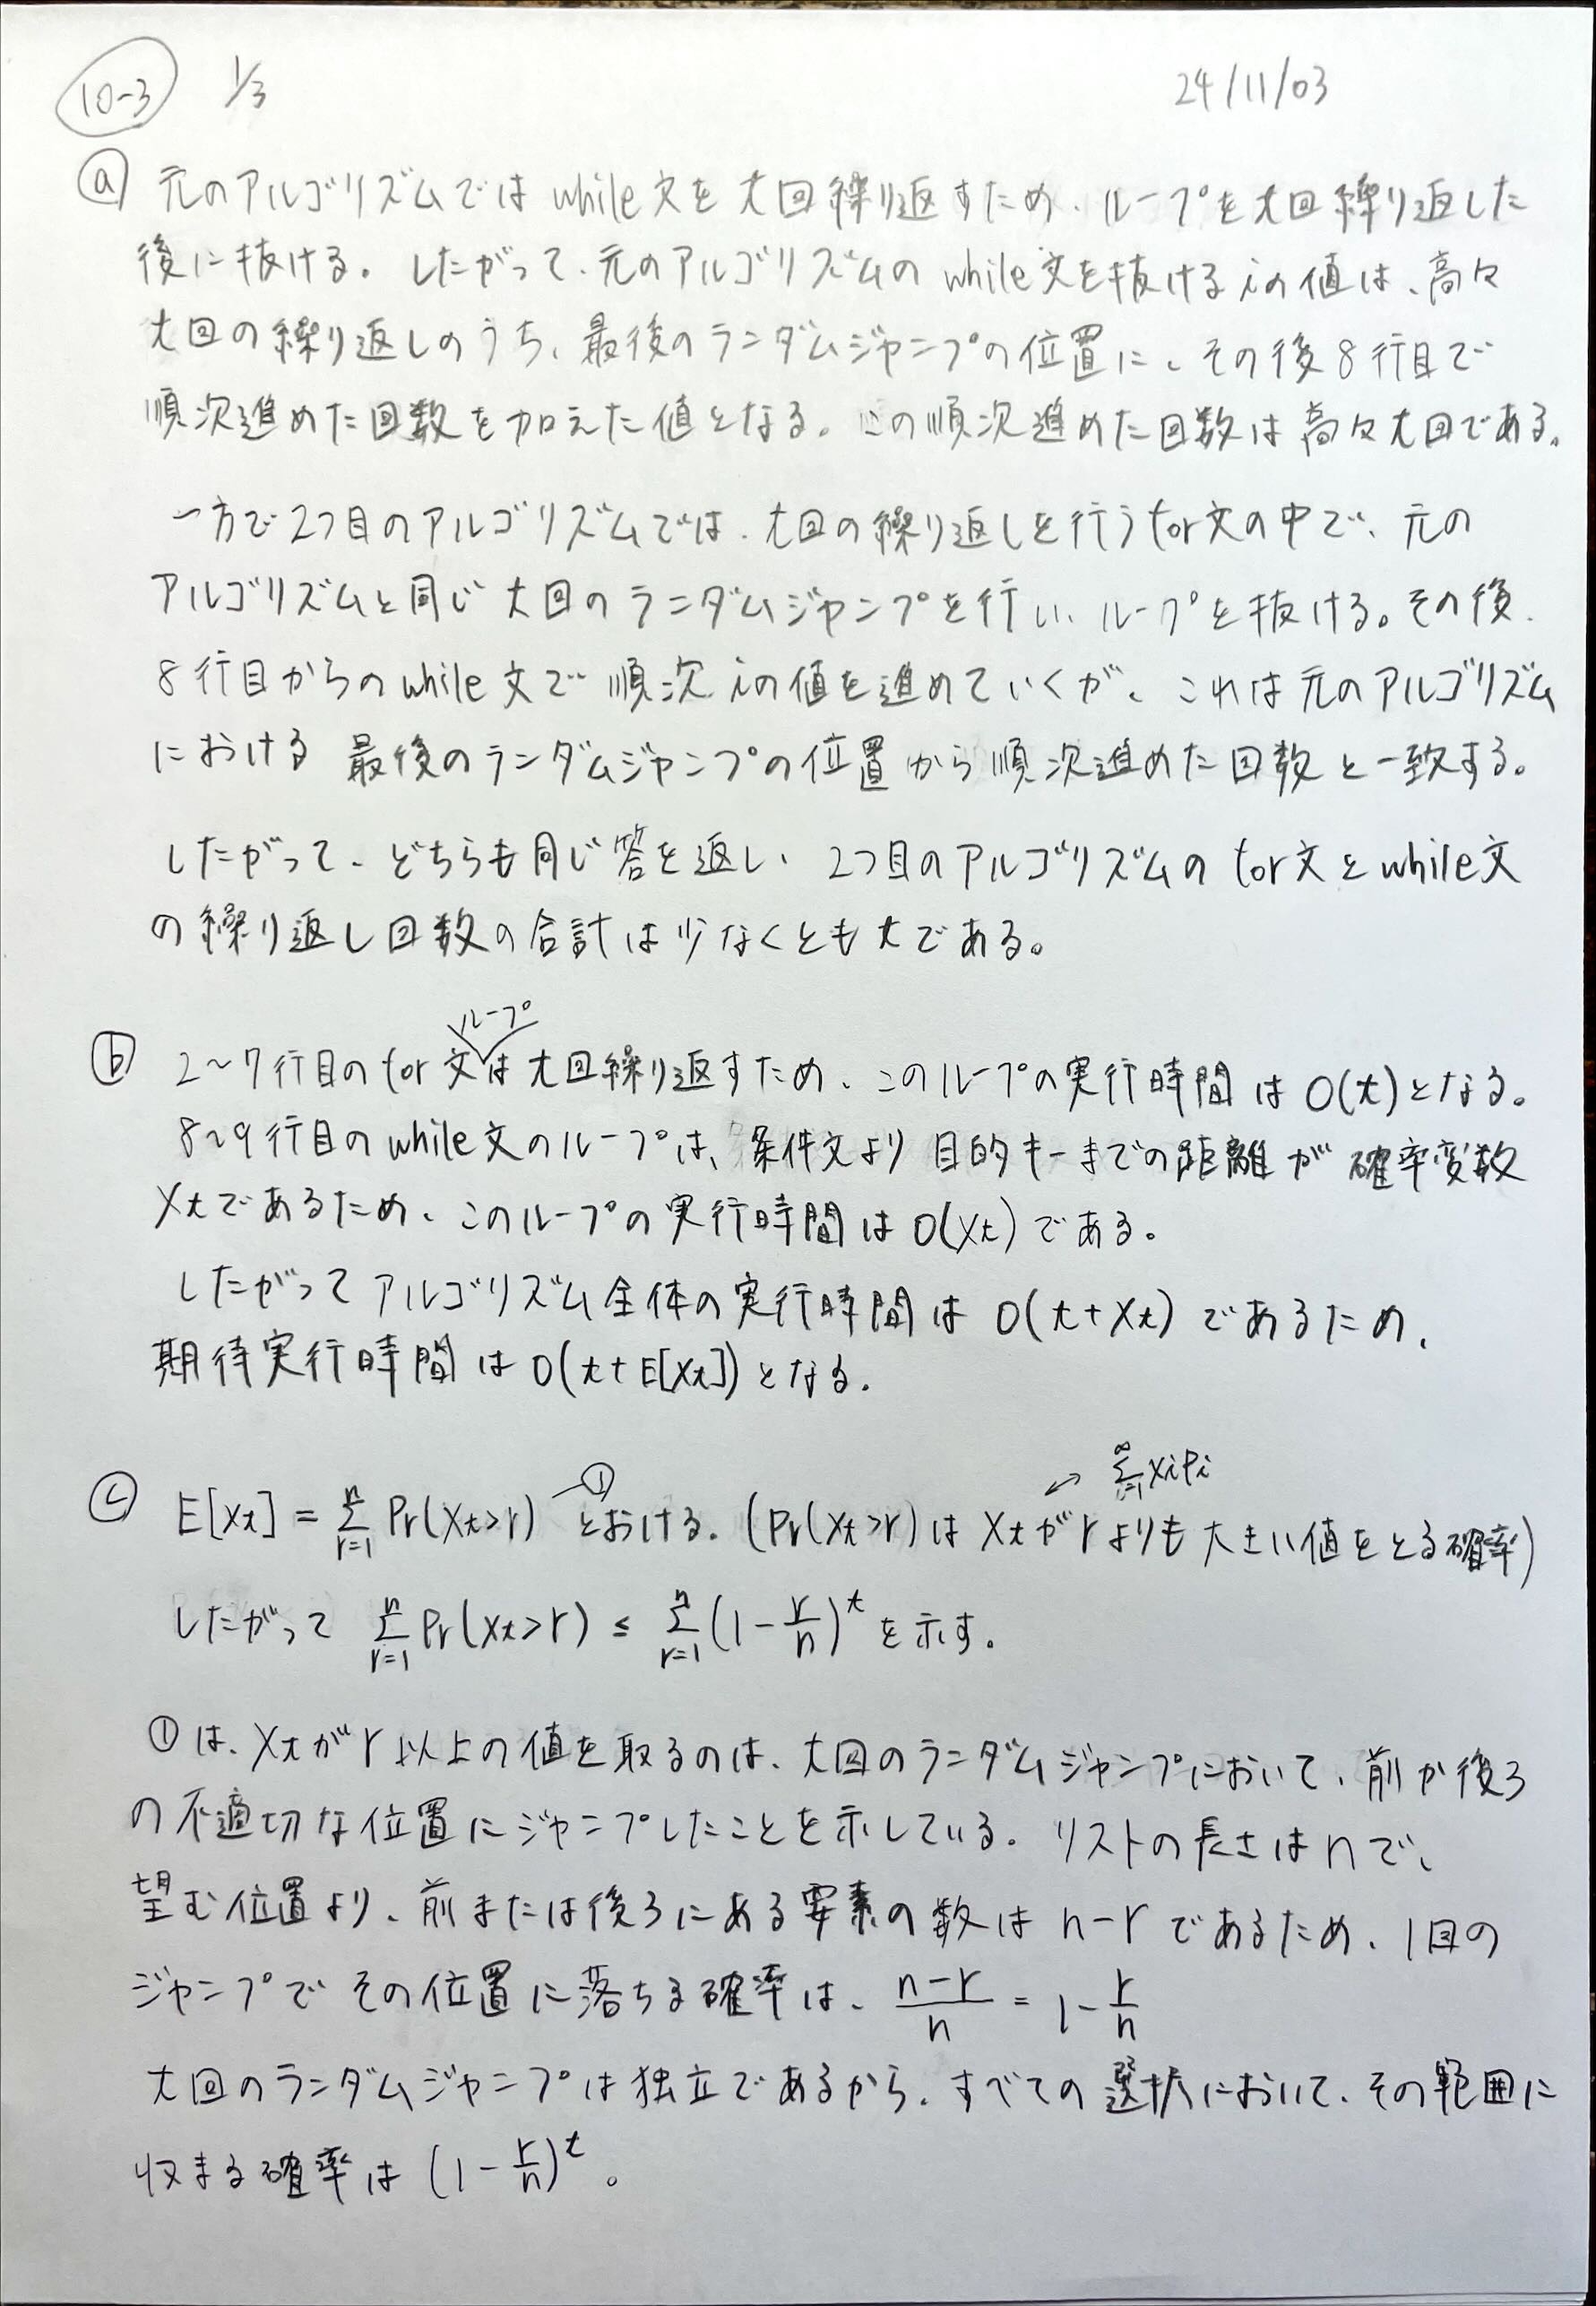 10-3 1/3 24/11/03
ⓐ 元のアルゴリズムではwhile文をt回繰り返すため、ループをt回繰り返した
後に抜ける。したがって、元のアルゴリズムのwhile文を抜けるiの値は、高々
t回の繰り返しのうち、最後のランダムジャンプの位置に、その後8行目で
順次進めた回数を加えた値となる。この順次進めた回数は高々t回である。
一方で2つ目のアルゴリズムでは、t回の繰り返しを行うfor文の中で、元の
アルゴリズムと同じt回のランダムジャンプを行い、ループを抜ける。その後、
8行目からのwhile文で順次iの値を進めていくが、これは元のアルゴリズム
における最後のランダムジャンプの位置から順次進めた回数と一致する。
したがって、どちらも同じ答を返し、2つ目のアルゴリズムのfor文とwhile文
の繰り返し回数の合計は少なくともtである。
ループ
ⓑ 2~7行目のfor文は t回繰り返すため、このループの実行時間はO(t)となる。
8~9行目のwhile文のループは、条件文より目的キーまでの距離が確率変数
Xtであるため、このループの実行時間はO(Xt)である。
したがってアルゴリズム全体の実行時間はO(t+Xt)であるため、
期待実行時間はO(t+E[Xt])となる。
① ↙ Σ^∞_{i=1} xipi
ⓒ E[Xt] = Σ^n_{r=1} Pr(Xt>r) とおける。(Pr(Xt>r)はXtがrよりも大きい値をとる確率)
したがって Σ^n_{r=1} Pr(Xt>r) ≤ Σ^n_{r=1} (1-r/n)^t を示す。
①は、Xtがr以上の値を取るのは、t回のランダムジャンプにおいて、前か後ろ
の不適切な位置にジャンプしたことを示している。リストの長さはnで、
望む位置より、前または後ろにある要素の数はn-rであるため、1回の
ジャンプでその位置に落ちる確率は、(n-r)/n = 1-r/n
t回のランダムジャンプは独立であるから、すべての選択において、その範囲に
収まる確率は(1-r/n)^t。